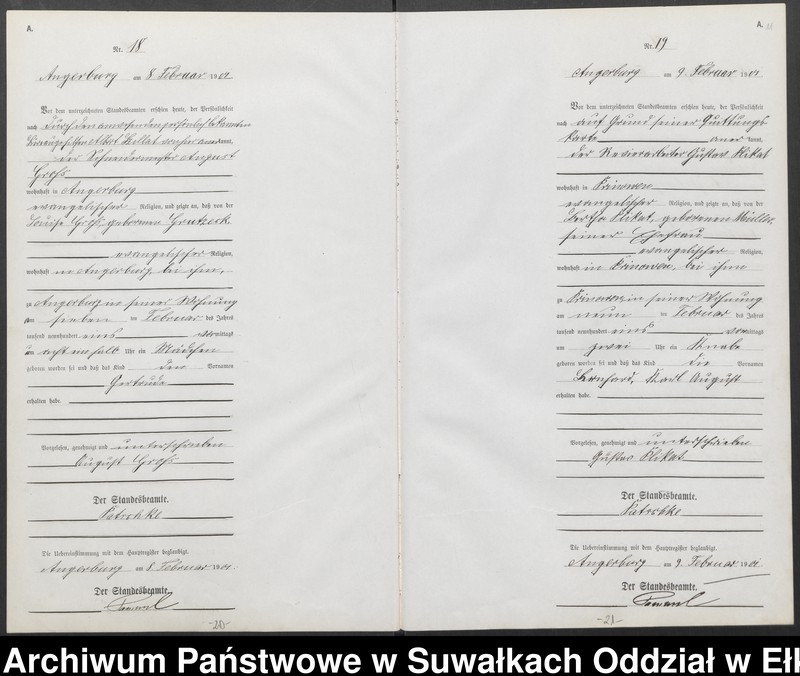 A.
Nr. 18
Angerburg am 8 Februar 1901
Vor dem unterzeichneten Standesbeamten erschien heute, der Persönlichkeit
nach durch den anwesenden persönlich bekannten
Albert kannt,
der Schneidermeister August
Groß
wohnhaft in Angerburg
evangelischer Religion, und zeigte an, daß von der
Louise Groß, geborenen Grutzeck
evangelischer Religion,
wohnhaft in Angerburg, bei ihm,
zu Angerburg in seiner Wohnung
am sieben ten Februar des Jahres
tausend neunhundert eins Vormittags
um acht ein halb Uhr ein Mädchen
geboren worden sei und daß das Kind den Vornamen
Gertrude
erhalten habe.
Vorgelesen, genehmigt und unterschrieben
August Groß
Der Standesbeamte.
Die Uebereinstimmung mit dem Hauptregister beglaubigt.
Angerburg am 8. Februar 1901.
Der Standesbeamte.
-20-
A.
Nr. 19
Angerburg am 9. Februar 1901
Vor dem unterzeichneten Standesbeamten erschien heute, der Persönlichkeit
nach auf Grund seiner Quittungs
karte aner kannt,
der Revierarbeiter Gustav Klikat
wohnhaft in Prinowen
evangelischer Religion, und zeigte an, daß von der
Bertha Klikat, geborenen Mueller,
seiner Ehefrau
evangelischer Religion,
wohnhaft in Prinowen, bei ihm
zu Prinowen in seiner Wohnung
am neun ten Februar des Jahres
tausend neunhundert eins vormittags
um zwei Uhr ein Knabe
geboren worden sei und daß das Kind die Vornamen
Bernhard, Karl August
erhalten habe.
Vorgelesen, genehmigt und unterschrieben
Gustav Klikat
Der Standesbeamte.
Die Uebereinstimmung mit dem Hauptregister beglaubigt.
Angerburg am 9. Februar 1901.
Der Standesbeamte.
-21-
Archiwum Państwowe w Suwałkach Oddział w Ełk